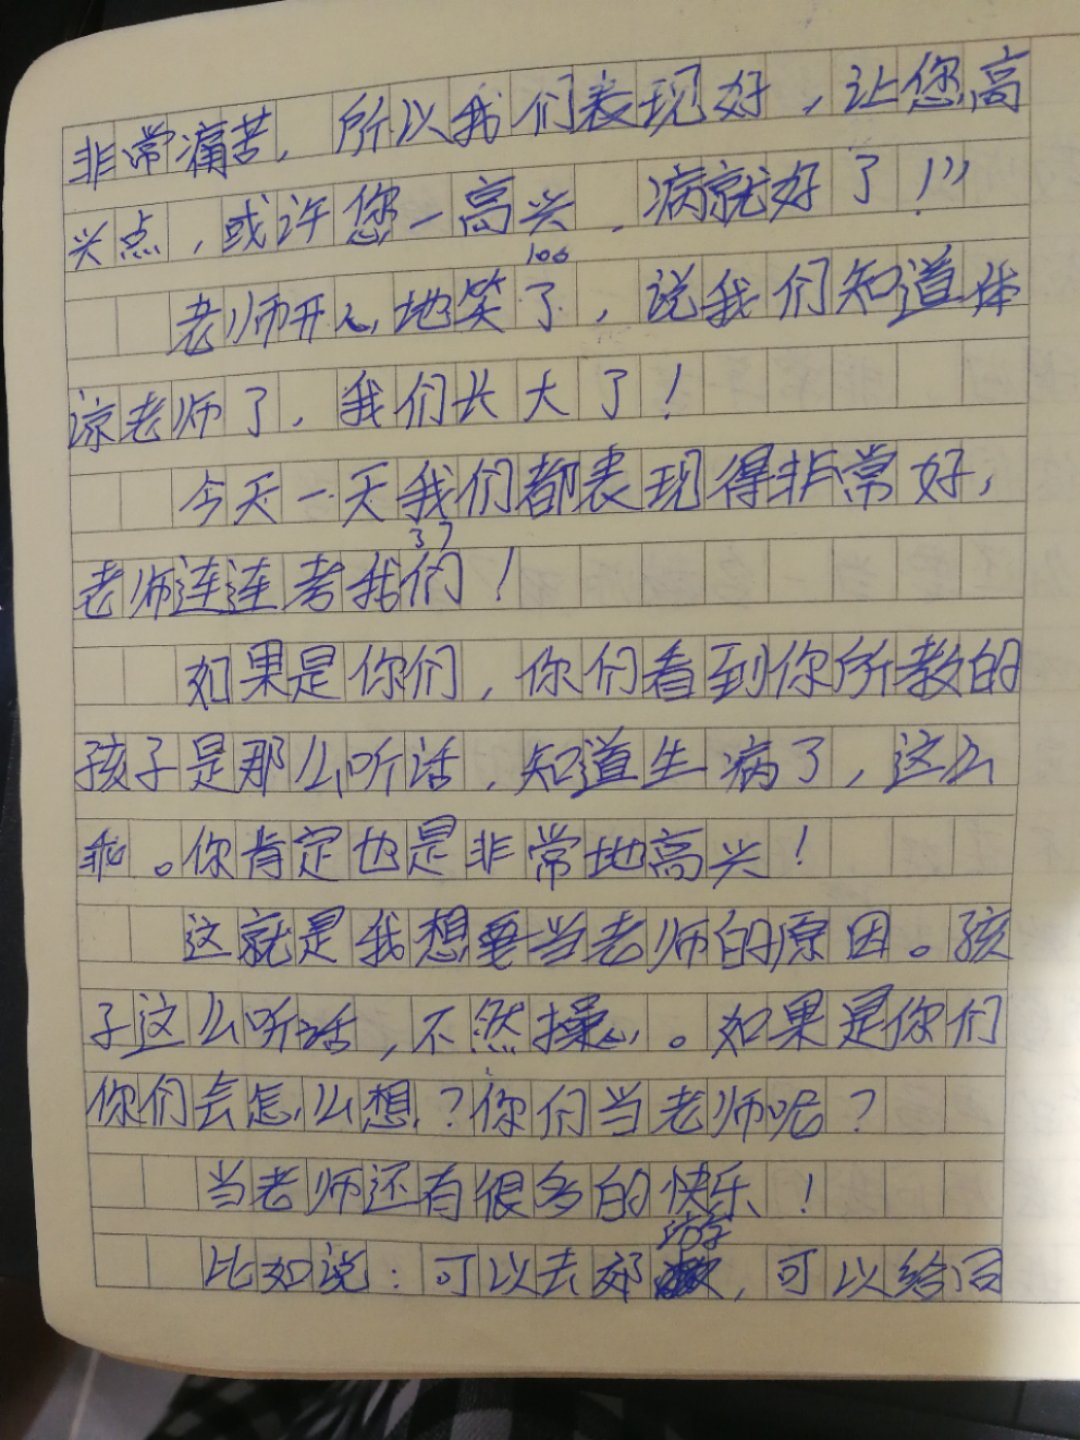 非常痛苦,所以我们表现好,让您高
兴点,或许您一高兴,病就好了!”
100
老师开心地笑了,说我们知道体
谅老师了,我们长大了!
今天一天我们都表现得非常好,
37
老师连连考我们!
如果是你们,你们看到你所教的
孩子是那么听话,知道生病了,这么
乖。你肯定也是非常地高兴!
这就是我想要当老师的原因。孩
子这么听话,不然操心。如果是你们
你们会怎么想?你们当老师呢?
当老师还有很多的快乐!
游
比如说:可以去郊,可以给同